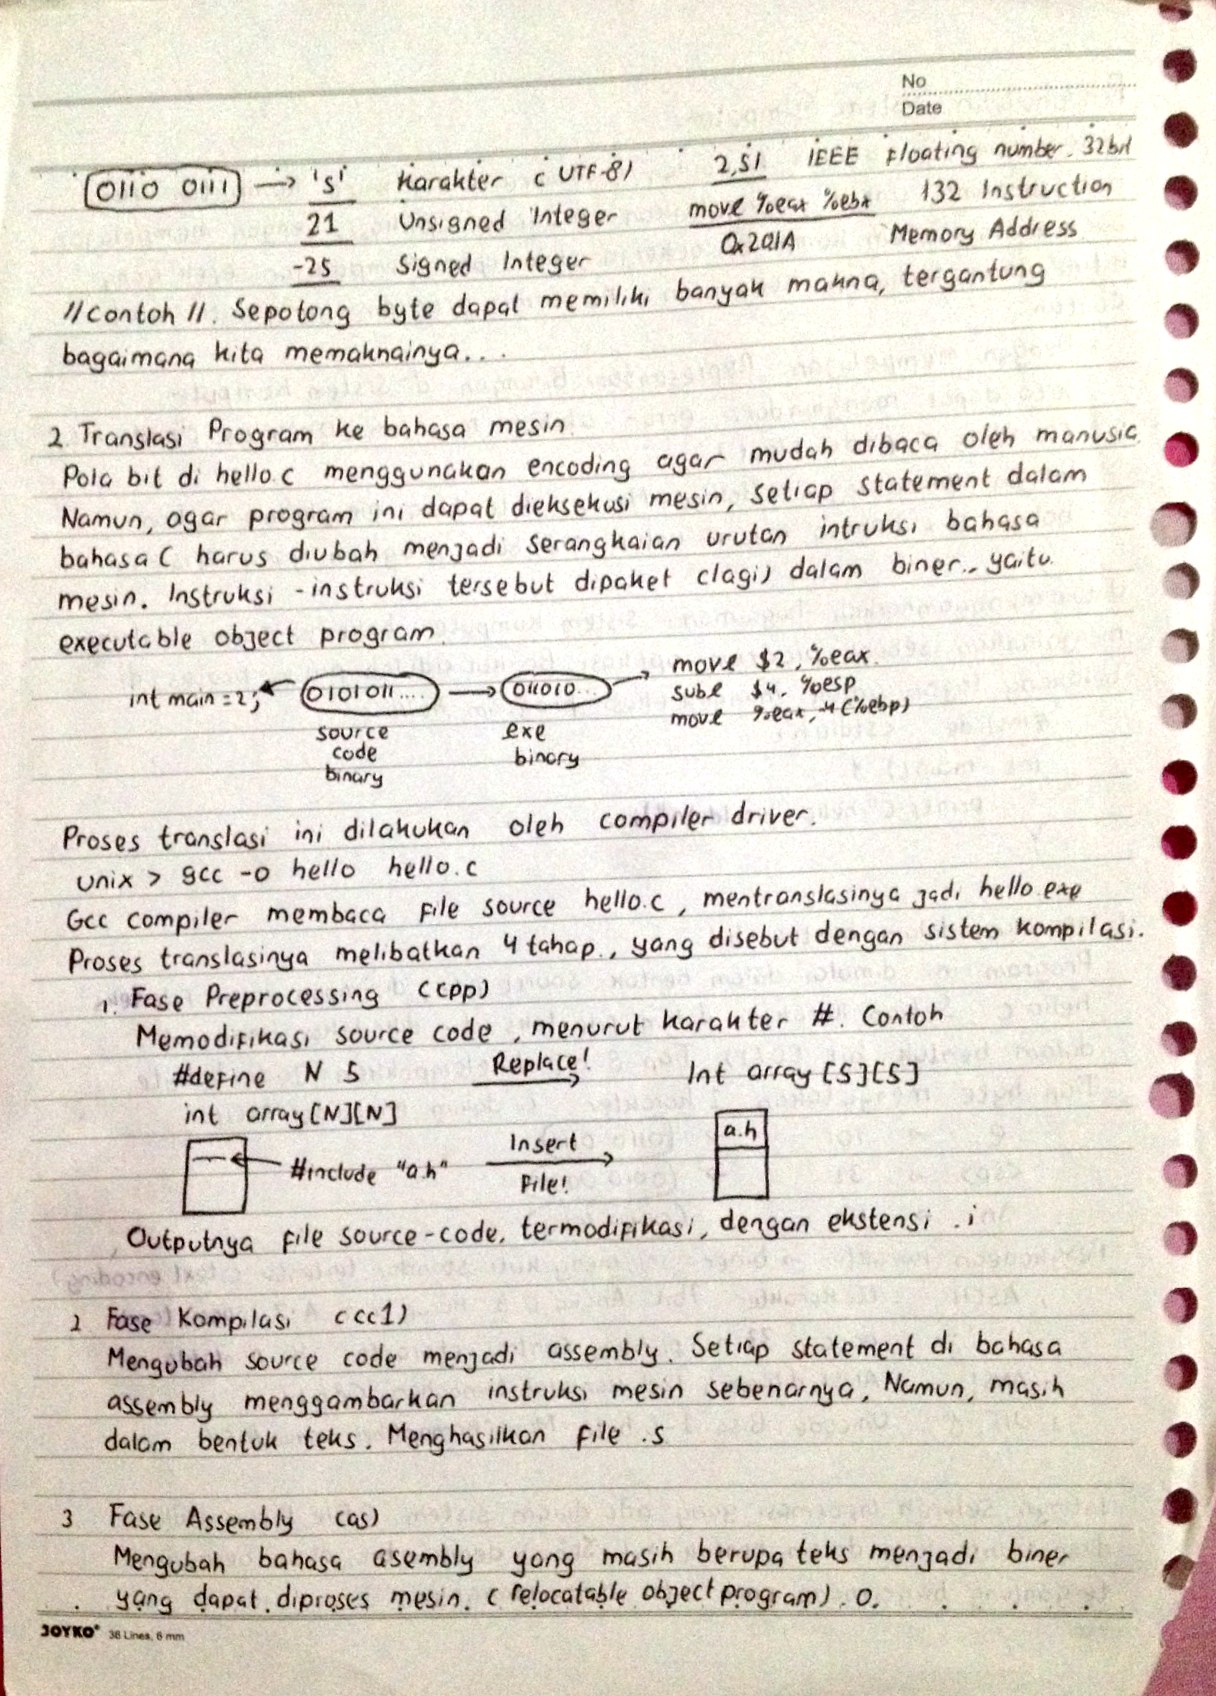 No
Date
0110 0111 → 's' Karakter (UTF-8) 2,51 IEEE Floating number. 32bit
21 Unsigned Integer move %eax %ebx 132 Instruction
-25 Signed Integer 0x201A Memory Address
//Contoh//. Sepotong byte dapat memiliki banyak makna, tergantung
bagaimana kita memaknainya...
2 Translasi Program ke bahasa mesin
Pola bit di hello.c menggunakan encoding agar mudah dibaca oleh manusia.
Namun, agar program ini dapat dieksekusi mesin, setiap statement dalam
bahasa C harus diubah menjadi serangkaian urutan intruksi bahasa
mesin. Instruksi-instruksi tersebut dipaket (lagi) dalam biner., yaitu
executable object program.
int main = 2; ← 0101011.... → 011010... → move $2, %eax
subl $4, %esp
move %eax, -4(%ebp)
source code binary
exe binary
Proses translasi ini dilakukan oleh compiler driver.
unix > gcc -o hello hello.c
Gcc compiler membaca file source hello.c, mentranslasinya jadi hello.exe
Proses translasinya melibatkan 4 tahap., yang disebut dengan sistem kompilasi.
1. Fase Preprocessing (cpp)
Memodifikasi source code, menurut karakter #. Contoh
#define N 5 Replace! → Int array[5][5]
int array[N][N]
#include "a.h" Insert File! → a.h
Outputnya file source-code, termodifikasi, dengan ekstensi .i
2 Fase Kompilasi (cc1)
Mengubah source code menjadi assembly. Setiap statement di bahasa
assembly menggambarkan instruksi mesin sebenarnya, Namun, masih
dalam bentuk teks. Menghasilkan file .s
3 Fase Assembly (as)
Mengubah bahasa asembly yang masih berupa teks menjadi biner
yang dapat diproses mesin. (relocatable object program) .o.
JOYKO® 36 Lines, 6 mm